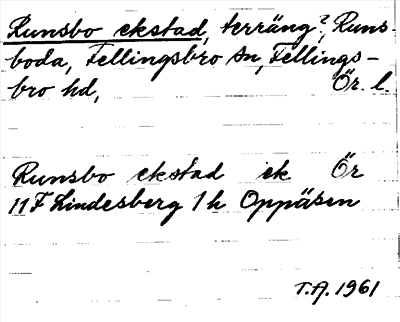 Runsbo ekstad, terräng?, Runs-
boda, Fellingsbro sn, Fellings-
bro hd, Ör. l.
Runsbo ekstad ek Ör
11 F Lindesberg 1 h Oppåsen
T.A. 1961